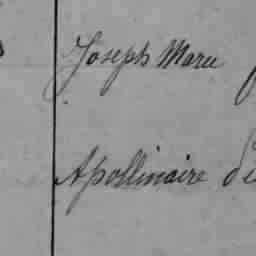 Joseph Marie
Apollinaire